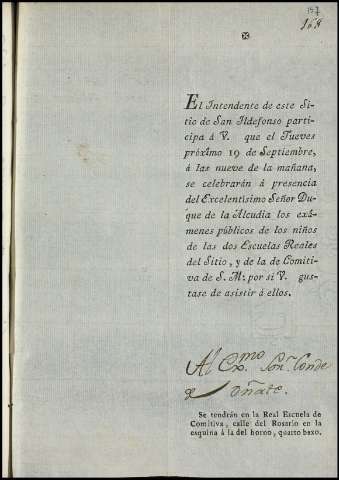 157
168
✠
El Intendente de este Si-
tio de San Ildefonso parti-
cipa á V. que el Jueves
próximo 19 de Septiembre,
á las nueve de la mañana,
se celebrarán á presencia
del Excelentísimo Señor Du-
que de la Alcudia los exá-
menes públicos de los niños
de las dos Escuelas Reales
del Sitio, y de la de Comiti-
va de S. M. por si V. gus-
tase de asistir á ellos.
Al Exmo. Sor. Conde
de Oñate.
Se tendrán en la Real Escuela de
Comitiva, calle del Rosario en la
esquina á la del horno, quarto baxo.